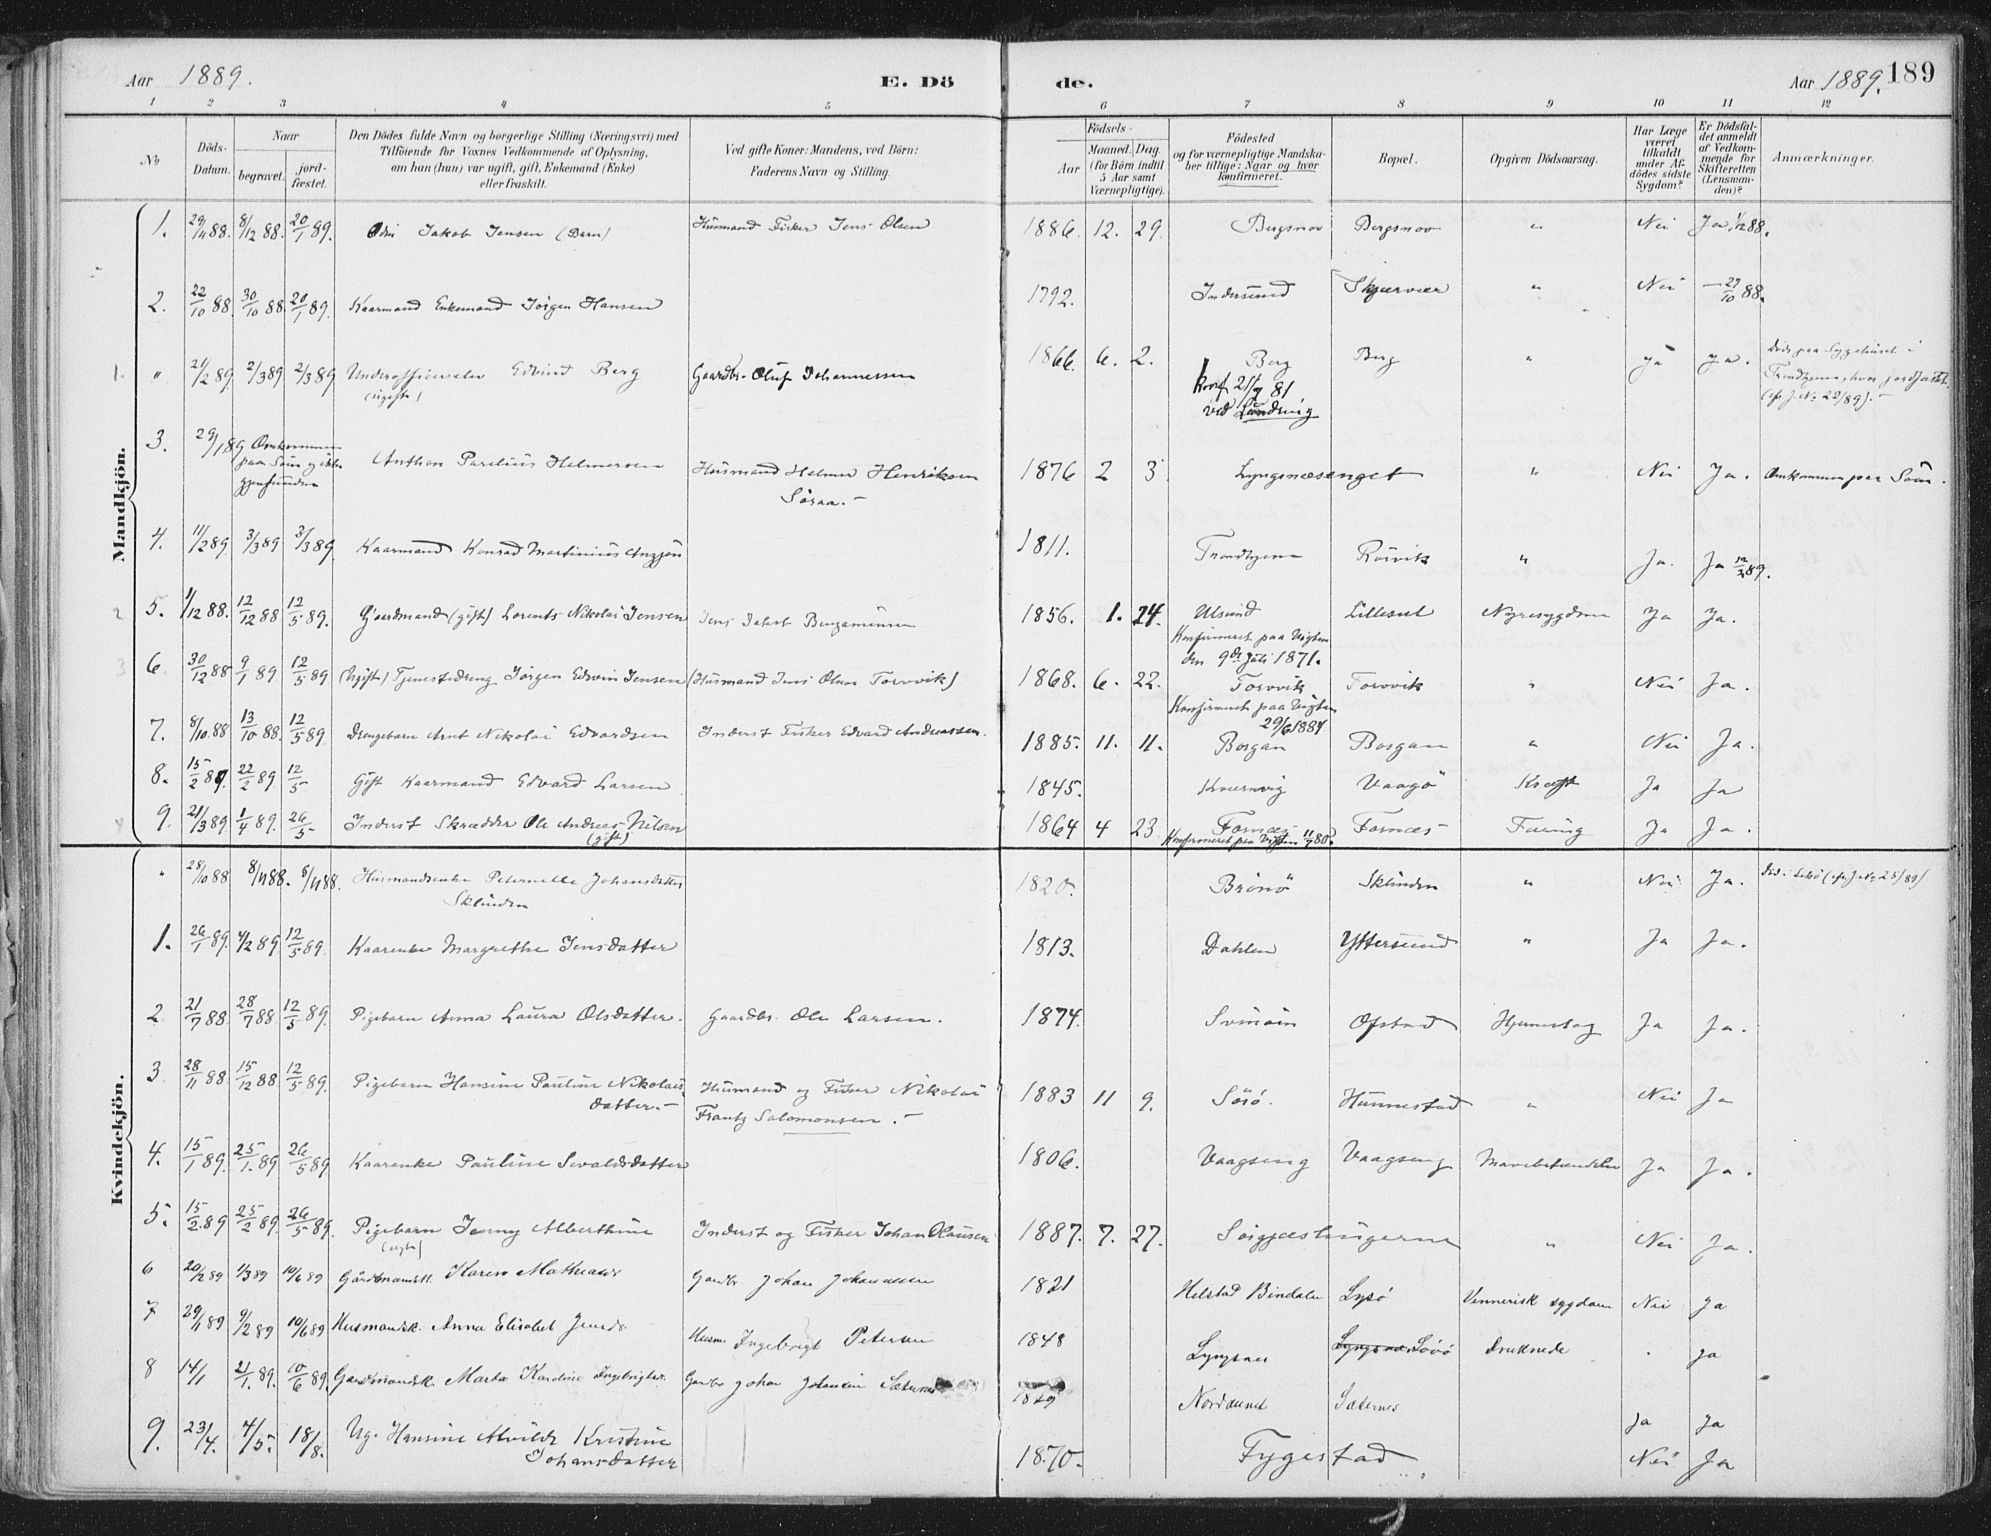 Aar 1889. E. Dö de. Aar 1889. 189
1 2 3 4 5 6 7 8 9 10 11 12
No
Döds-Datum.
Naar begravet. jordfæstet.
Den Dödes fulde Navn og borgerlige Stilling (Næringsvei) med Tilföiende for Voxnes Vedkommende af Oplysning, om han (hun) var ugift, gift, Enkemand (Enke) eller fraskilt.
Ved gifte Koner: Mandens, ved Börn: Faderens Navn og Stilling.
Födsels- Aar Maaned. Dag. (for Börn indtil 5 Aar samt Værnepligtige).
Födested og for værnepligtige Mandskaber tillige: Naar og hvor konfirmeret.
Bopæl.
Opgiven Dödsaarsag.
Har Læge været tilkaldt under Afdödes sidste Sygdom?
Er Dödsfaldet anmeldt af Vedkommende for Skifteretten (Lensmanden)?
Anmærkninger.
Mandkjön.
1. 29/11 88. 8/12 88. 20/1 89. Odin Jakob Jensen (Barn) Husmand Fisker Jens Olsen 1886. 12. 29. Bergsnov Bergsnov " Nei Ja 1/12 88.
2. 22/10 88 30/10 88. 20/1 89. Kaarmand Enkemand Jörgen Hansen 1792. Indersund Skjærvær " Nei — 29/10 88.
1. " 21/2 89 2/3 89 2/3 89 Underofficerselev Edvind Berg (ugift) Gaardbr. Oluf Johannessen 1866 6. 2. Berg Berg " ja ja. Död paa Sygehuset i
konf 21/7 81 Trondhjem, hvor jordfæstet.
ved Lundring (cfr J. No 22/89). —
3. 29/1 89 Omkommen paa Söen og ikke gjenfunden Anthon Parelius Helmersen Husmand Helmer Henriksen 1876 2 3 Lyngsnæsenget " Nei Ja. Omkommen paa Söen.
Söraa. —
4. 11/2 89. 3/3 89 3/3 89. Kaarmand Konrad Martinius Angjen 1811. Trondhjem Rörvik " Ja. Ja 12/3 89.
2 5. 1/12 88. 12/12 88 12/5 89. Gaardmand (gift) Lorents Nikolai Jensen Jens Jakob Benjaminsen 1856. 1. 24. Ulsund Lillesul Nyresygdom Ja Ja.
Konfirmeret paa Vigten
den 9de Juli 1871.
3 6 30/12 88 9/1 89 12/5 89 (Ugift) Tjenestedreng Jörgen Edvin Jensen (Husmand Jens Olsen Torvvik) 1868. 6. 22. Torvvik Torvvik " Nei Ja.
Konfirmeret paa Vigten
29/6 1884
7. 8/10 88 13/10 88. 12/5 89. Drengebarn Arnt Nikolai Edvardsen Inderst Fisker Edvard Andreassen. 1885. 11. 11. Borgan Borgan " Nei Ja.
8. 15/2 89. 22/2 89 12/5 Gift Kaarmand Edvard Larsen 1845. Kvernvig Vaagö Kræft Ja Ja
4 9. 21/3 89. 1/4 89. 26/5 Inderst Skrædder Ole Andreas Nilsen (gift) 1864 4 23 Fornæs Fornæs Tæring Ja Ja.
Konfirmeret paa Vigten 11/7 80.
Kvindekjön.
" 28/10 88 8/11 88. 8/11 88. Husmandsenke Peternelle Johansdatter 1820. Brönö Sklinden " Nei Ja. Död i Lekö (cfr J. No 25/89)
Sklinden
1. 26/1 89. 4/2 89 12/5 89. Kaarenke Margrethe Jensdatter 1813. Dahlen Yttersund " Ja Ja.
2 21/7 88 28/7 88 12/5 89. Pigebarn Anna Laura Olsdatter. Gaardbr. Ole Larsen. 1874. Svinöen Ofstad Hjerneslag Ja Ja.
3 28/11 88 15/12 88 12/5 89. Pigebarn Hansine Pauline Nikolai- Husmand og Fisker Nikolai 1883 11 9. Sörö. Hunnestad " Nei Ja
datter. — Frantz Salomonsen. —
4. 15/1 89. 25/1. 89 26/5 89 Kaarenke Pauline Sivaldsdatter 1806. Vaagseng Vaagseng Mavebetændelse Ja Ja.
5. 15/2. 89 25/2 89. 26/5 89. Pigebarn Jenny Alberthine (ægte) Inderst og Fisker Johan Olausen 1887. 7. 27. Sörgjæslingerne " Nei Ja.
6 20/2 89 1/3 89 10/6 89 Gårdmandsk. Karen Mathiasd. Gaardbr. Johan Johannesen 1821 Helstad Bindalen Lysö Vennerisk sygdom Nei Ja
7 29/1 89 9/2 89 10/6 89 Husmandsk. Anna Elisabet Jensd. Husm. Ingebrigt Petersen 1848 Lyngsnes Lyngsnes Lövö Druknede . ja
8 14/1 21/1. 89. 10/6 89. Gardmandsk. Marta Karoline Ingebrigtsd. Gardbr Johan Johansen Sæternes 1829 Nordaunet Sæternes ja ja
9. 23/4. 4/5. 18/8. Ug. Hansine Alvilde Kristine 1870. Fygestad Nei Ja
Johansdatter